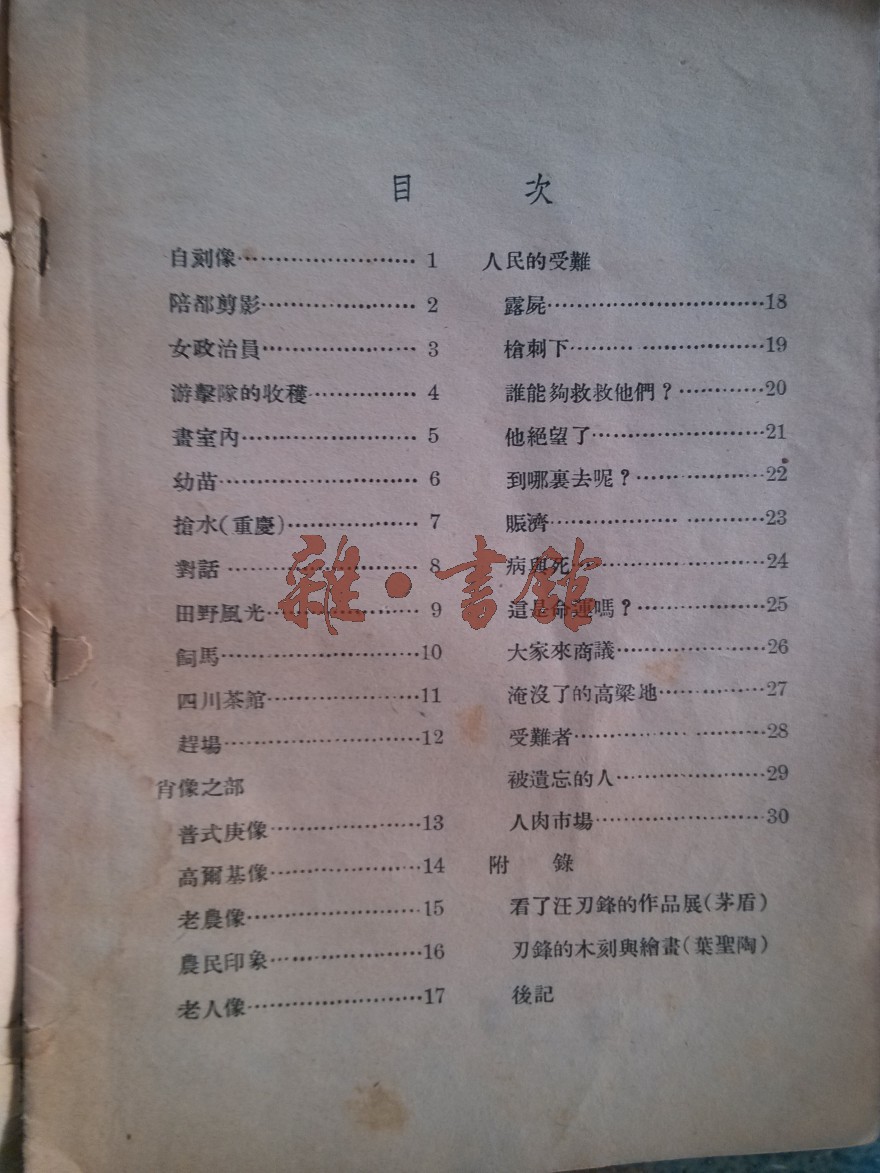 目 次
自刻像……………………1
陪都剪影…………………2
女政治員…………………3
游擊隊的收穫……………4
畫室內……………………5
幼苗………………………6
搶水(重慶)………………7
對話………………………8
田野風光…………………9
飼馬………………………10
四川茶館…………………11
趕場………………………12
肖像之部
普式庚像…………………13
高爾基像…………………14
老農像……………………15
農民印象…………………16
老人像……………………17
人民的受難
露屍………………………18
槍刺下……………………19
誰能夠救救他們?…………20
他絕望了…………………21
到哪裏去呢?………………22
賑濟………………………23
病與死……………………24
這是命運嗎?………………25
大家來商議………………26
淹沒了的高粱地…………27
受難者……………………28
被遺忘的人………………29
人肉市場…………………30
附 錄
看了汪刃鋒的作品展(茅盾)
刃鋒的木刻與繪畫(葉聖陶)
後記
雜·書館